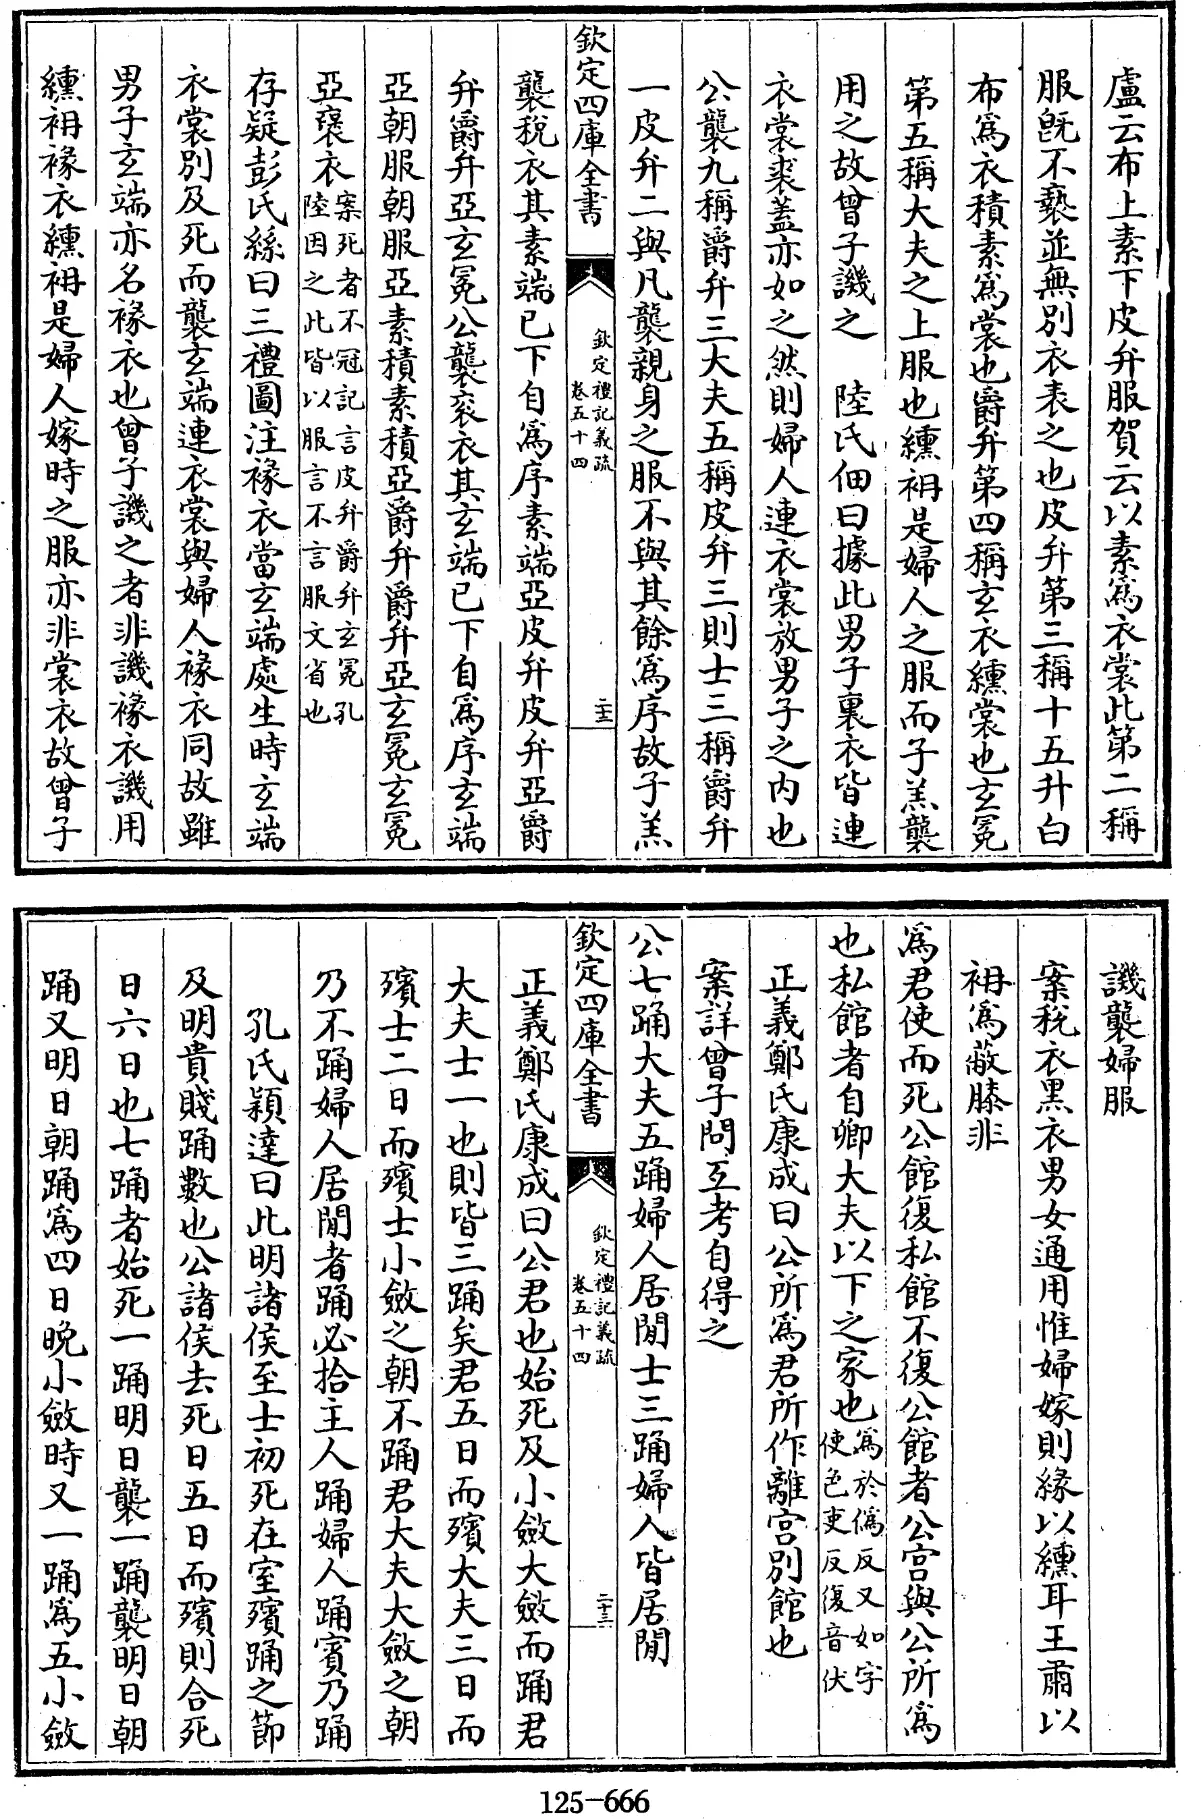 盧云布上素下皮弁服賀云以素為衣裳此第二稱
服既不褻並無別衣表之也皮弁第三稱十五升白
布為衣積素為裳也爵弁第四稱玄衣纁裳也玄冕
第五稱大夫之上服也纁袡是婦人之服而子羔襲
用之故曾子譏之　陸氏佃曰據此男子裏衣皆連
衣裳裘蓋亦如之然則婦人連衣裳放男子之内也
公襲九稱爵弁三大夫五稱皮弁三則士三稱爵弁
一皮弁二與凡襲親身之服不與其餘為序故子羔
欽定四庫全書
欽定禮記義疏
卷五十四
二十二
襲稅衣其素端已下自為序素端亞皮弁皮弁亞爵
弁爵弁亞玄冕公襲衮衣其玄端已下自為序玄端
亞朝服朝服亞素積素積亞爵弁爵弁亞玄冕玄冕
亞襃衣
案死者不冠記言皮弁爵弁玄冕孔
陸因之此皆以服言不言服文省也
存疑彭氏絲曰三禮圖注褖衣當玄端處生時玄端
衣裳別及死而襲玄端連衣裳與婦人褖衣同故雖
男子玄端亦名褖衣也曾子譏之者非譏褖衣譏用
纁袡褖衣纁袡是婦人嫁時之服亦非裳衣故曾子
譏襲婦服
案稅衣黑衣男女通用惟婦嫁則緣以纁耳王肅以
袡為蔽膝非
為君使而死公館復私館不復公館者公宫與公所為
也私館者自卿大夫以下之家也
為於偽反又如字
使色吏反復音伏
正義鄭氏康成曰公所為君所作離宫別館也
案詳曾子問互考自得之
公七踊大夫五踊婦人居閒士三踊婦人皆居閒
欽定四庫全書
欽定禮記義疏
卷五十四
二十三
正義鄭氏康成曰公君也始死及小斂大斂而踊君
大夫士一也則皆三踊矣君五日而殯大夫三日而
殯士二日而殯士小斂之朝不踊君大夫大斂之朝
乃不踊婦人居閒者踊必拾主人踊婦人踊賓乃踊
孔氏穎達曰此明諸侯至士初死在室殯踊之節
及明貴賤踊數也公諸侯去死日五日而殯則合死
日六日也七踊者始死一踊明日襲一踊襲明日朝
踊又明日朝踊為四日晚小斂時又一踊為五小斂
125-666